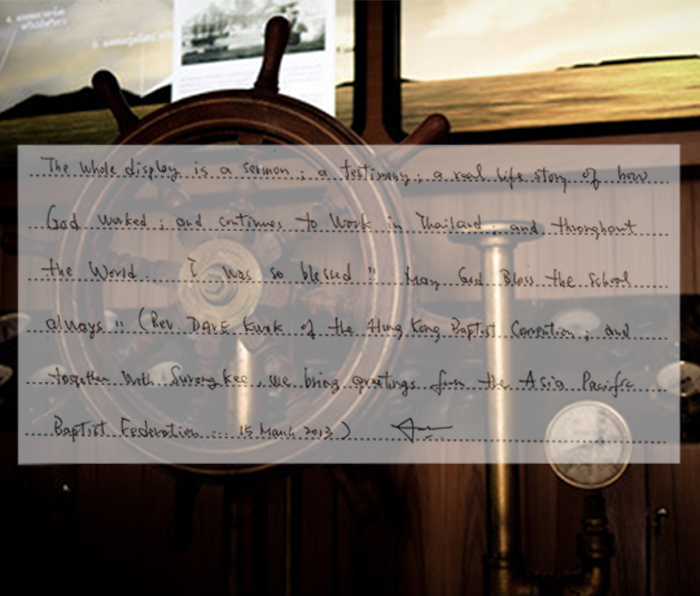 The whole display is a sermon ; a testimony ; a real life story of how
God worked ; and continues to work in Thailand and throughout
the World. I was so blessed !! May God Bless the School
always !! (Rev. DAVE Kwok of the Hong Kong Baptist Convention ; and
together with Surong Kee, we bring greetings from the Asia Pacific
Baptist Federation 15 March 2013)